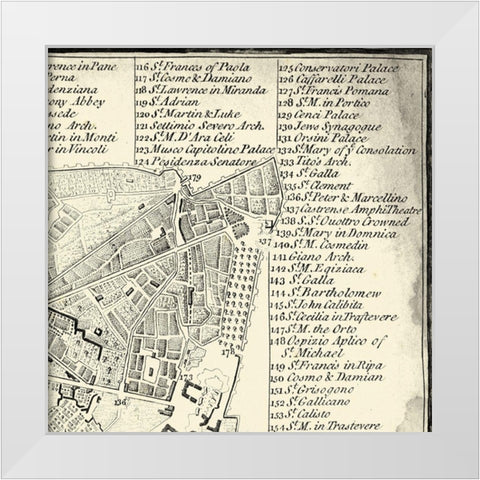 rence in Pane
Perna
denziana
ony Abbey
uscde
no Arch.
tin in Monti
r in Vincoli
116 St. Frances of Paola
117 St. Cosme & Damiano
118 St. Lawrence in Miranda
119 St. Adrian
120 St. Martin & Luke
121 Settimio Severo Arch.
122 St. M. D'Ara Celi
123 Musco Capitolino Palace
124 Pesidenza Senatore
125 Conservatori Palace
126 Caffarelli Palace
127 St. Francis Pomana
128 St. M. in Portico
129 Cenci Palace
130 Jews Synagogue
131 Orsini Palace
132 St. Mary of ye Consolation
133 Tito's Arch.
134 St. Galla
135 St. Clement
136 St. Peter & Marcellino
137 Castrense AmphiTheatre
138 S.S. Quottro Crowned
139 St. Mary in Domnica
140 St. M. Cosmedin
141 Giano Arch.
142 St. M. Egiziaca
143 St. Galla
144 St. Bartholomew
145 St. John Calibita
146 St. Cecilia in Trastevere
147 St. M. the Orto
148 Ospizio Aplico of
St. Michael
149 St. Francis in Ripa
150 Cosmo & Damian
151 St. Grisogono
152 St. Gallicano
153 St. Calisto
154 St. M. in Trastevere
179
137
178
173
136